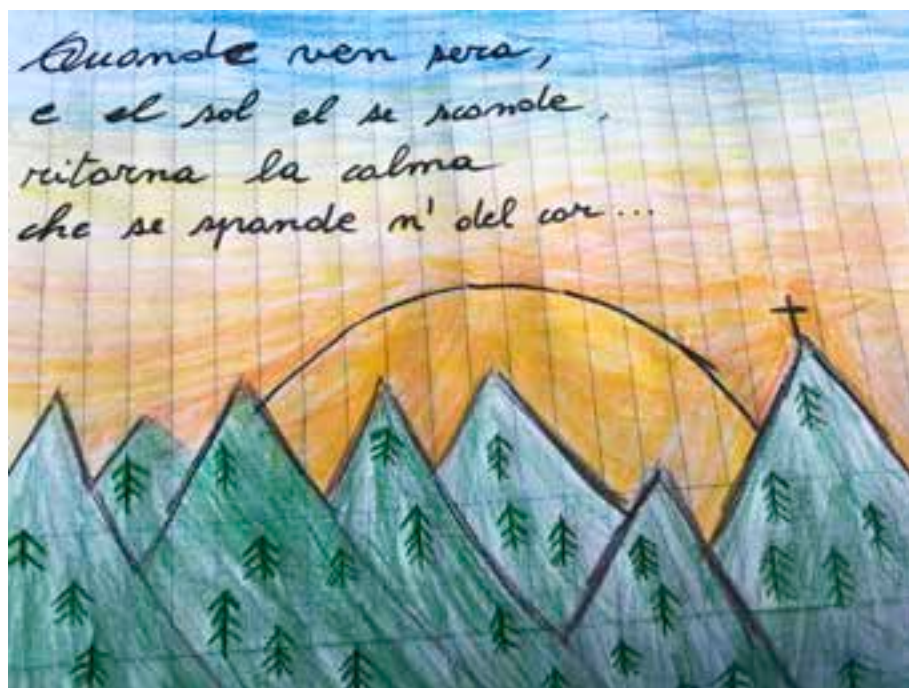 Quande ven sera,
e el sol el se sconde,
ritorna la calma
che se spande n' del cor...